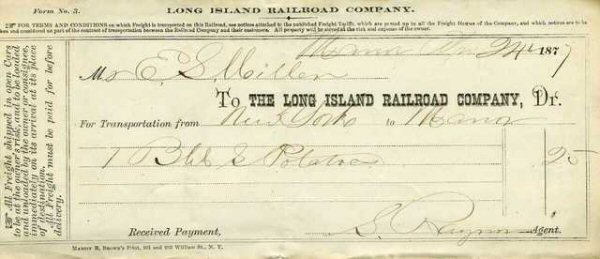 Form No. 3.
LONG ISLAND RAILROAD COMPANY.
FOR TERMS AND CONDITIONS on which Freight is transported on this Railroad, see notices attached to the published Freight Tariffs, which are posted up in all the Freight Houses of the Company, and which notices are to be taken
and considered as part of the contract of transportation between the Railroad Company and their customers. All property will be stored at the risk and expense of the owner.
All Freight, shipped in open Cars
to be at the owner's risk, and to be loaded
and unloaded by the owner or consignee,
immediately on its arrival at its place
of destination.
All Freight must be paid for before
delivery.
Manor 24 1877
Mr E. S. Miller
To THE LONG ISLAND RAILROAD COMPANY, Dr.
For Transportation from New York to Manor
1 Bbl S Potatoes 25
S. Raynor Agent.
Received Payment,
MARTIN B. BROWN'S Print, 201 and 203 William St., N. Y.